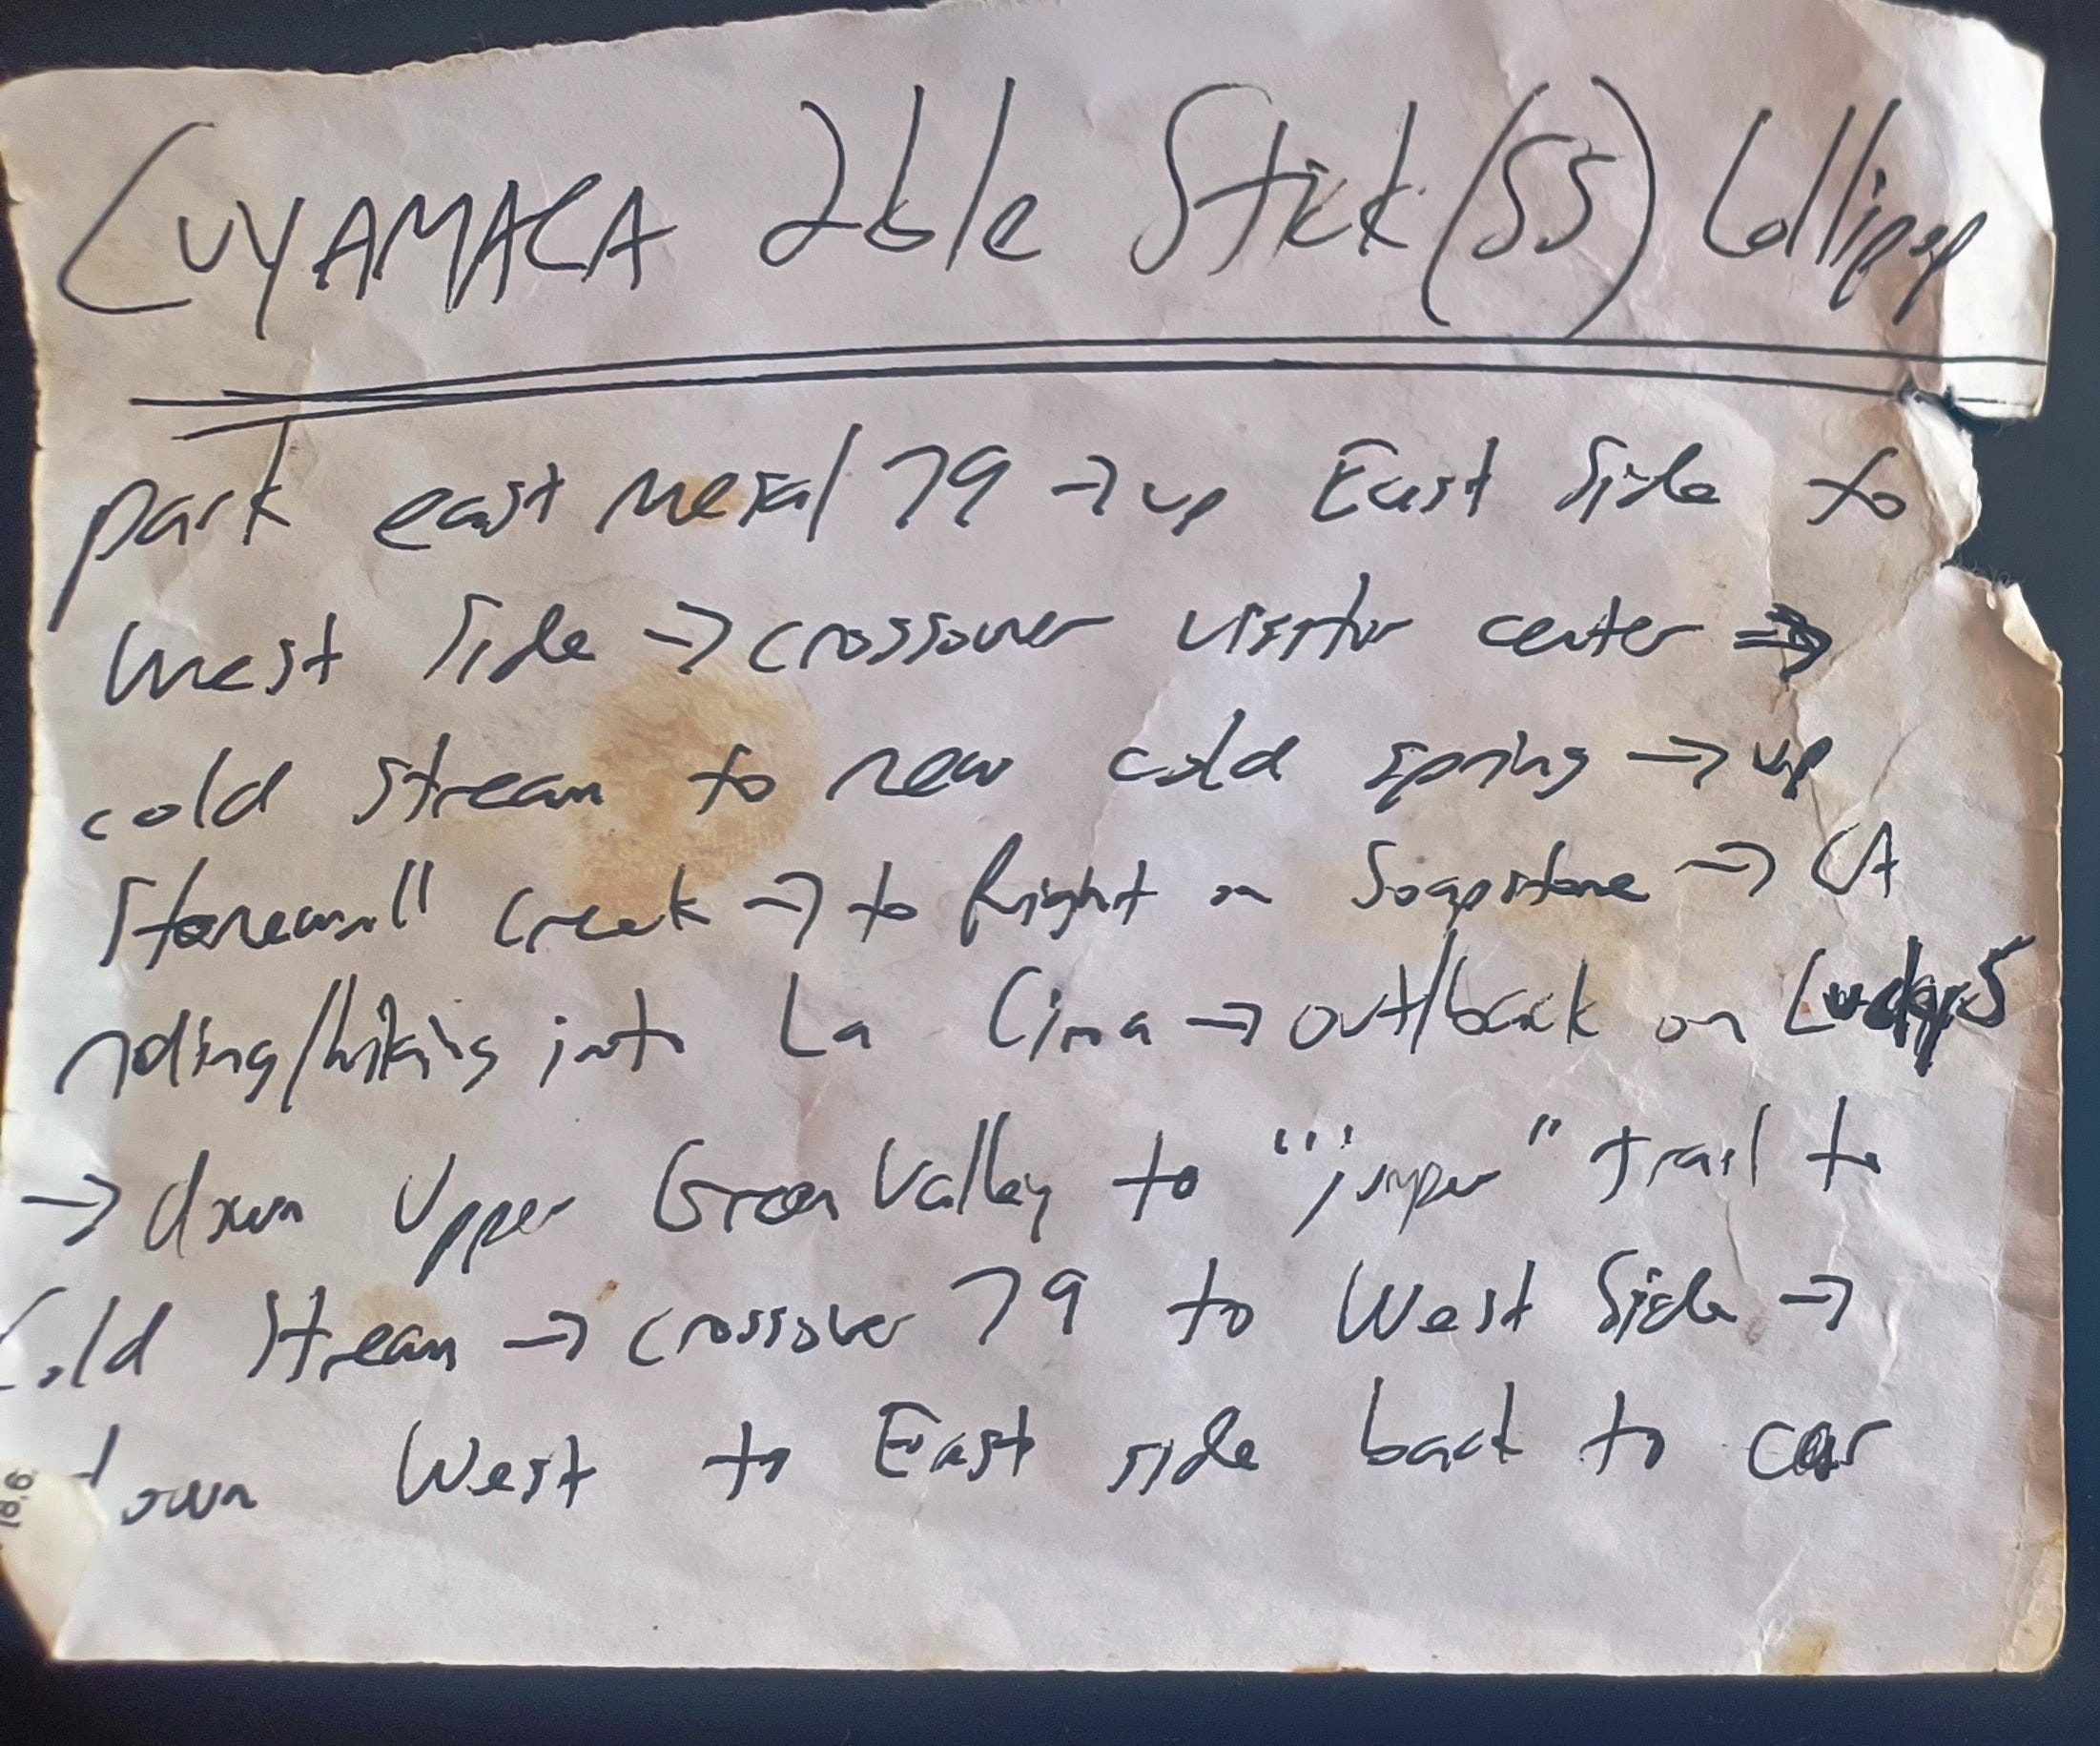 CUYAMACA 2ble Stick (SS) Lollipop
park east Mesa/79 → up East Side to
West Side → crossover visitor center →
cold stream to new cold spring → up
Stonewall Creek → to Right on Soapstone → CA
riding/hiking into La Cima → out/back on Lucky 5
→ down Upper Green Valley to "jumper" trail to
Cold Stream → crossover 79 to West Side →
down West to East side back to car